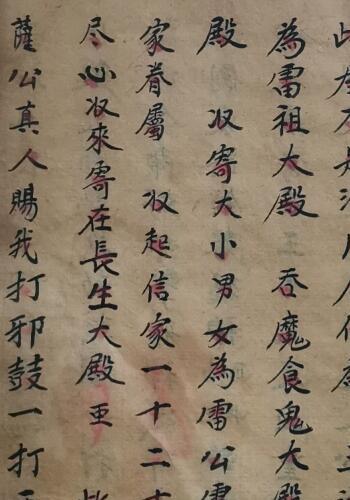 不是
為雷祖大殿 吞魔食鬼大殿
殿 収寄大小男女為雷公雷
家眷屬 収起信家一十二
尽心収來寄在長生大殿王
薩公真人賜我打邪鼓一打